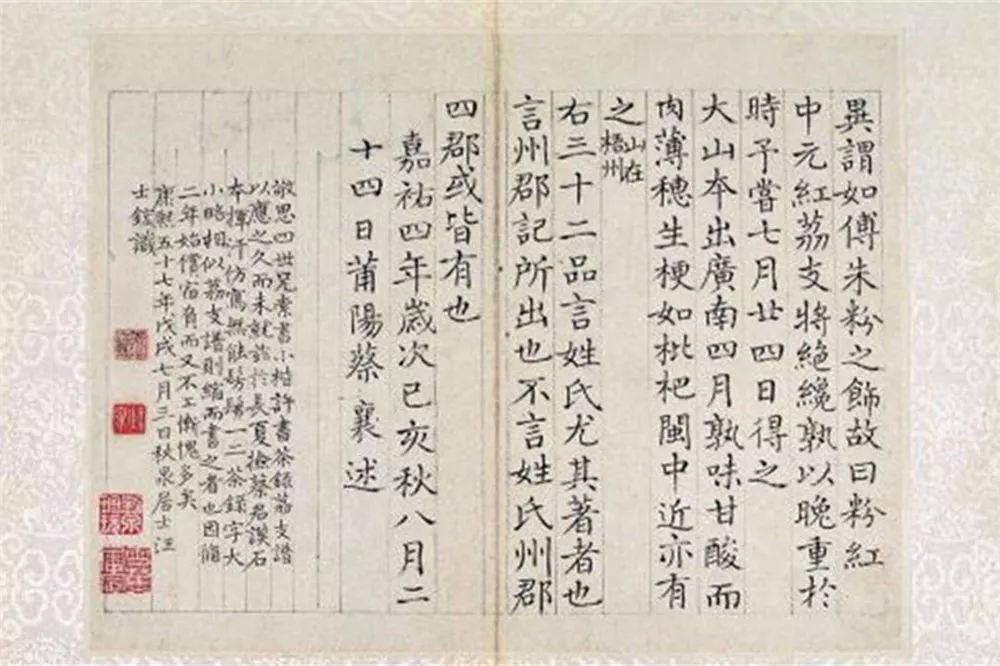 異謂如傅朱粉之飾故曰粉紅
中元紅荔支將絕纔熟以晚重於
時予嘗七月廿四日得之
大山本出廣南四月熟味甘酸而
肉薄穗生梗如枇杷閩中近亦有
之山在梧州
右三十二品言姓氏尤其著者也
言州郡記所出也不言姓氏州郡
四郡或皆有也
嘉祐四年歲次己亥秋八月二
十四日莆陽蔡襄述
敬思四世兄索書小楷許書茶錄荔支譜
以應之久而未就茲於長夏撿蔡君謨石
本揮汗仿寫無能髣髴一二茶錄字大
小略相似荔支譜則縮而書之者也因循
二年始償宿負而又不工慚愧多矣
康熙五十七年戊戌七月三日秋泉居士汪
士鋐識